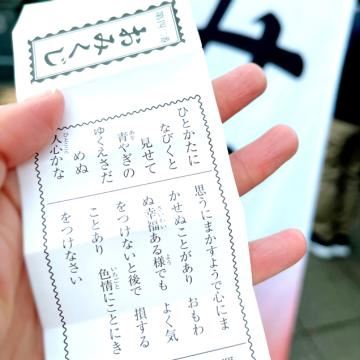 第四番
おみくじ
ひとかたに
なびくと
見せて
青やぎの
ゆくえさだ
めぬ
人心かな
思うにまかすようで心にま
かせぬことがあり おもわ
ぬ幸福ある様でも よく気
をつけないと後で 損する
ことあり 色情にことにき
をつけなさい